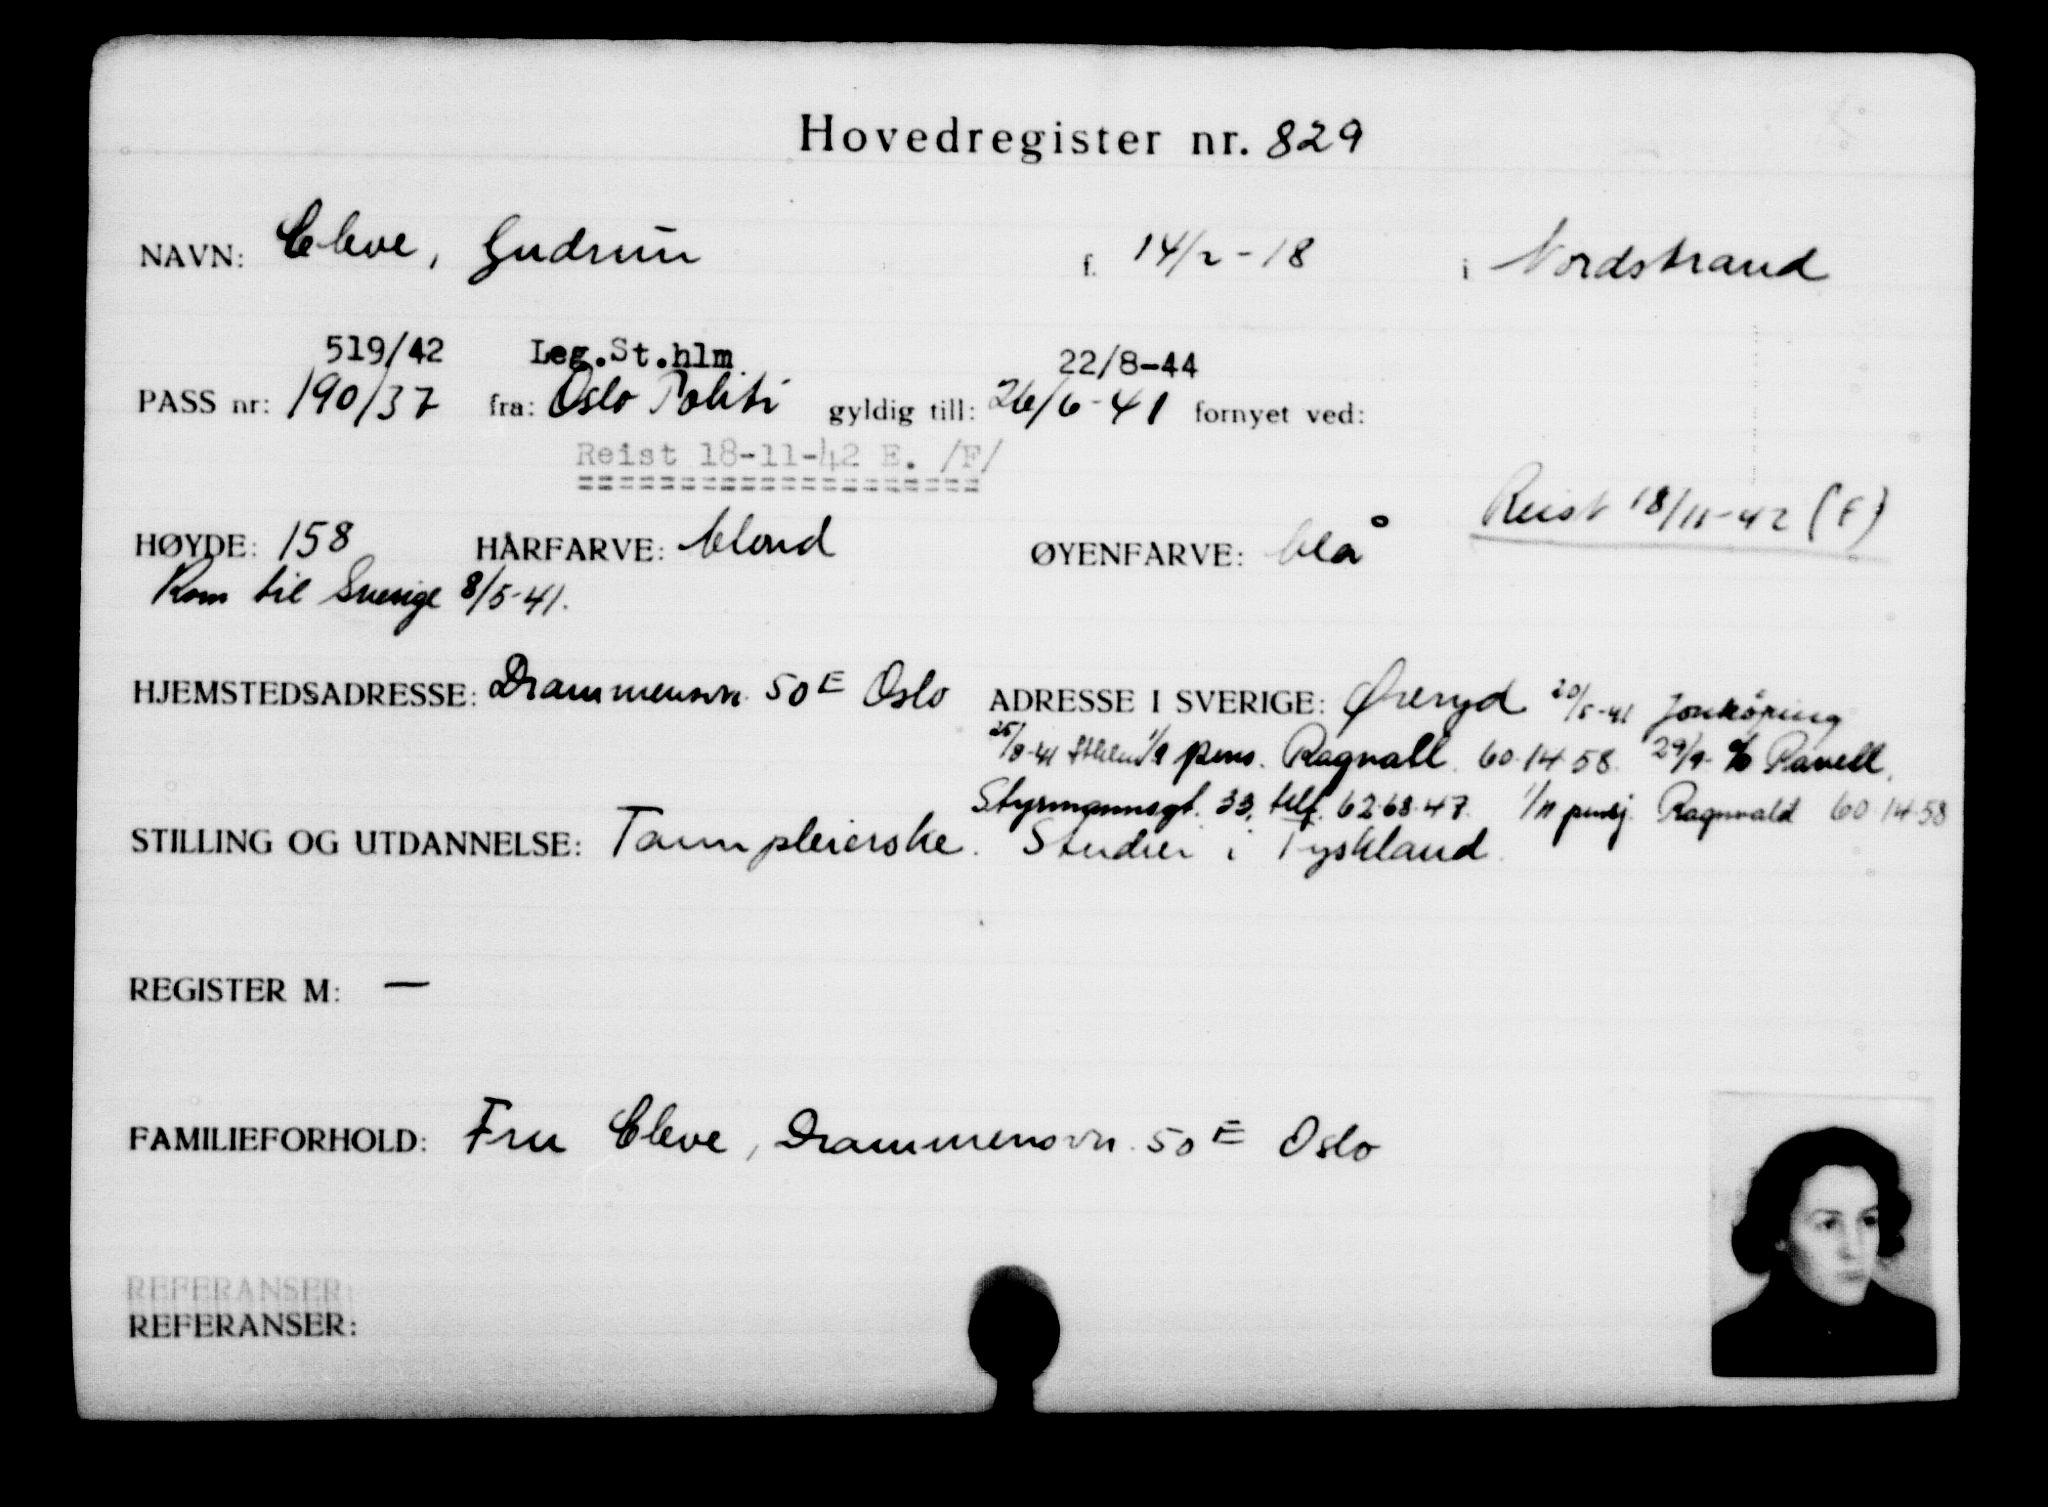 Hovedregister nr. 829
NAVN: Cleve, Gudrun f. 14/2-18 i Nordstrand
519/42 Leg.St.hlm. 22/8-44
PASS nr: 190/37 fra: Oslo Politi gyldig till: 26/6-41 fornyet ved:
Reist 18-11-42 E. /F/
====================
Reist 18/11-42 (F)
HØYDE: 158 HÅRFARVE: blond ØYENFARVE: blå
Kom til Sverige 8/5-41.
HJEMSTEDSADRESSE: Drammensvn. 50E Oslo ADRESSE I SVERIGE: Øreryd 20/5-41 Jonköping
25/8-41 Sthlm 1/9 pens. Ragnall. 60.14.58. 29/9- c/o Pavell,
Styrmannsgt. 33, telf. 62.68.47. 1/11 pensj. Ragnvald 60.14.58
STILLING OG UTDANNELSE: Tannpleierske. Studier i Tyskland.
REGISTER M: —
FAMILIEFORHOLD: Fru Cleve, Drammensvn. 50E Oslo
REFERANSER:
REFERANSER: